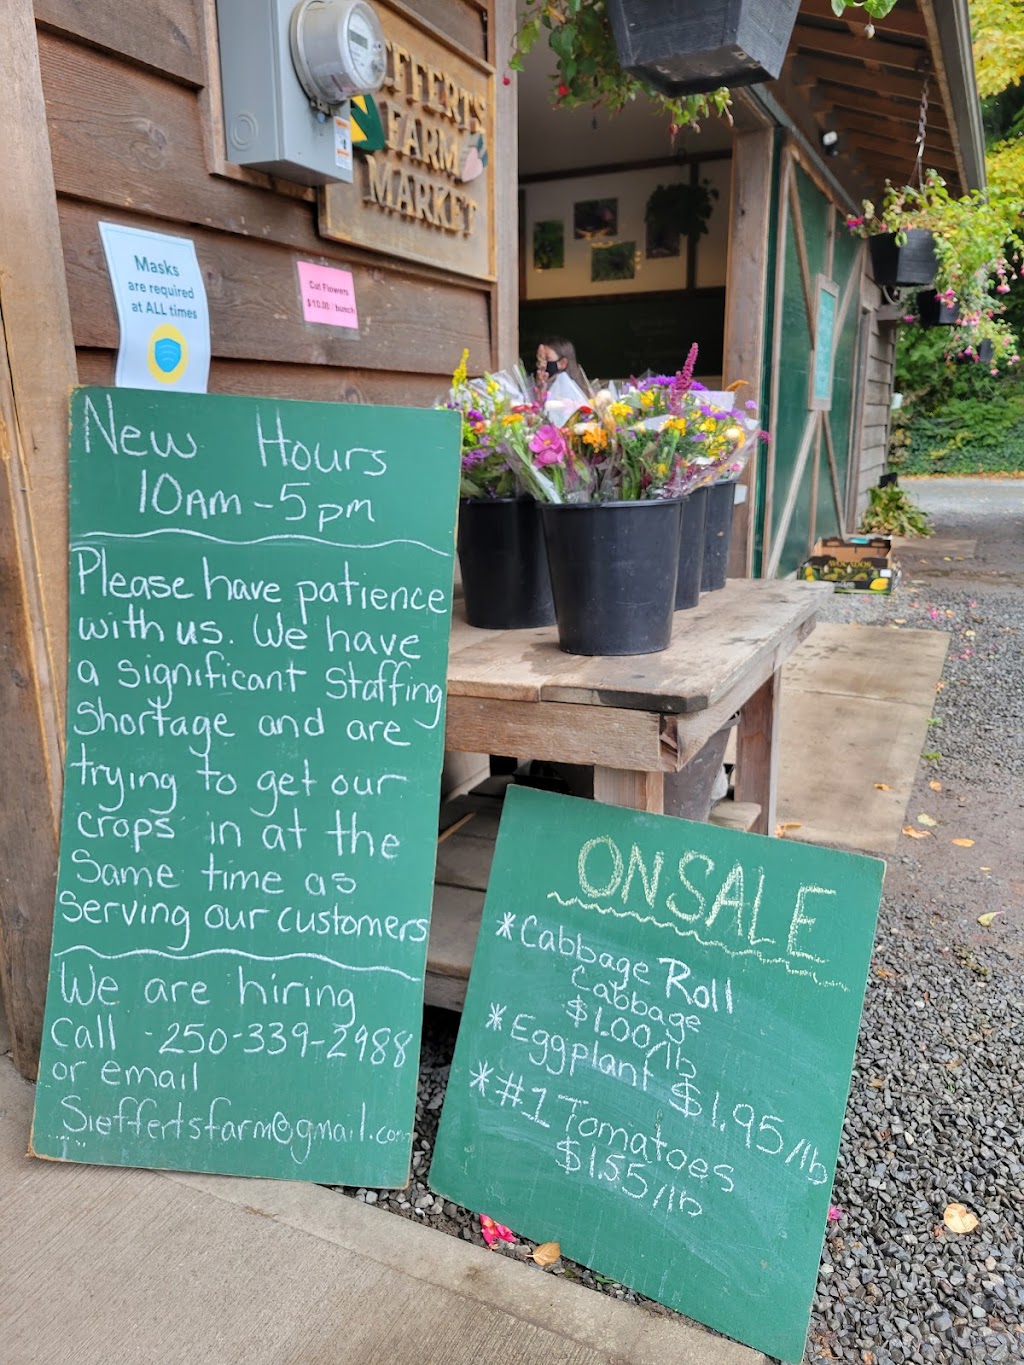 EFFERTS
FARM
MARKET
Masks
are required
at ALL times
Cut Flowers
$10.00 / bunch
New Hours
10AM - 5pm
Please have patience
with us. We have
a significant Staffing
Shortage and are
trying to get our
crops in at the
Same time as
Serving our customers
We are hiring
Call - 250-339-2988
or email
Sieffertsfarm@gmail.com
ON SALE
*Cabbage Roll
Cabbage
$1.00/lb
*Eggplant $1.95/lb
*#1 Tomatoes
$1.55/lb